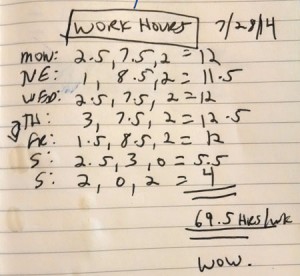 WORK HOURS 7/28/14
MON: 2.5, 7.5, 2 = 12
TUE: 1, 8.5, 2 = 11.5
WED: 2.5, 7.5, 2 = 12
TH: 3, 7.5, 2 = 12.5
FR: 1.5, 8.5, 2 = 12
S: 2.5, 3, 0 = 5.5
S: 2, 0, 2 = 4
69.5 HRS/WK
WOW.